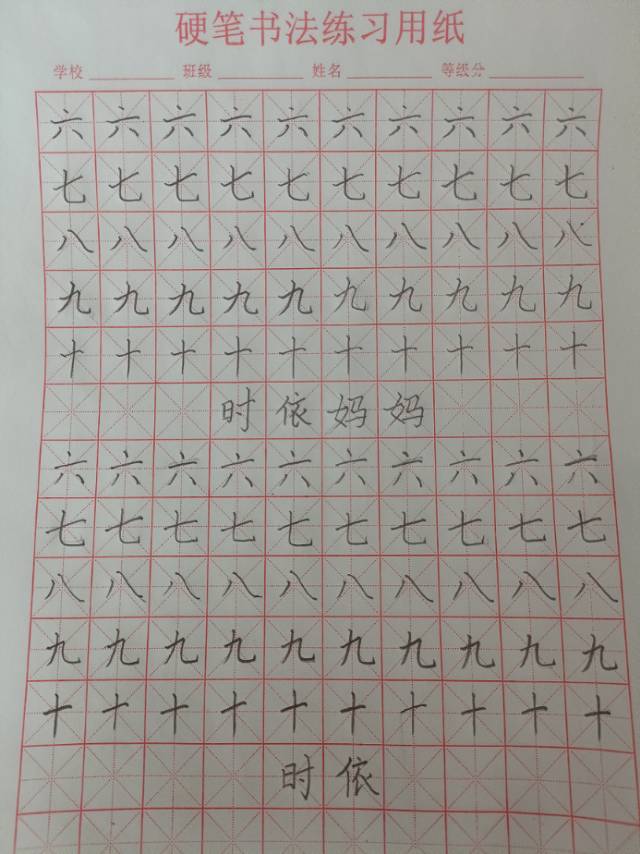 硬笔书法练习用纸
学校 班级 姓名 等级分
六六六六六六六六六六
七七七七七七七七七七
八八八八八八八八八八
九九九九九九九九九九
十十十十十十十十十十
时依妈妈
六六六六六六六六六六
七七七七七七七七七七
八八八八八八八八八八
九九九九九九九九九九
十十十十十十十十十十
时依